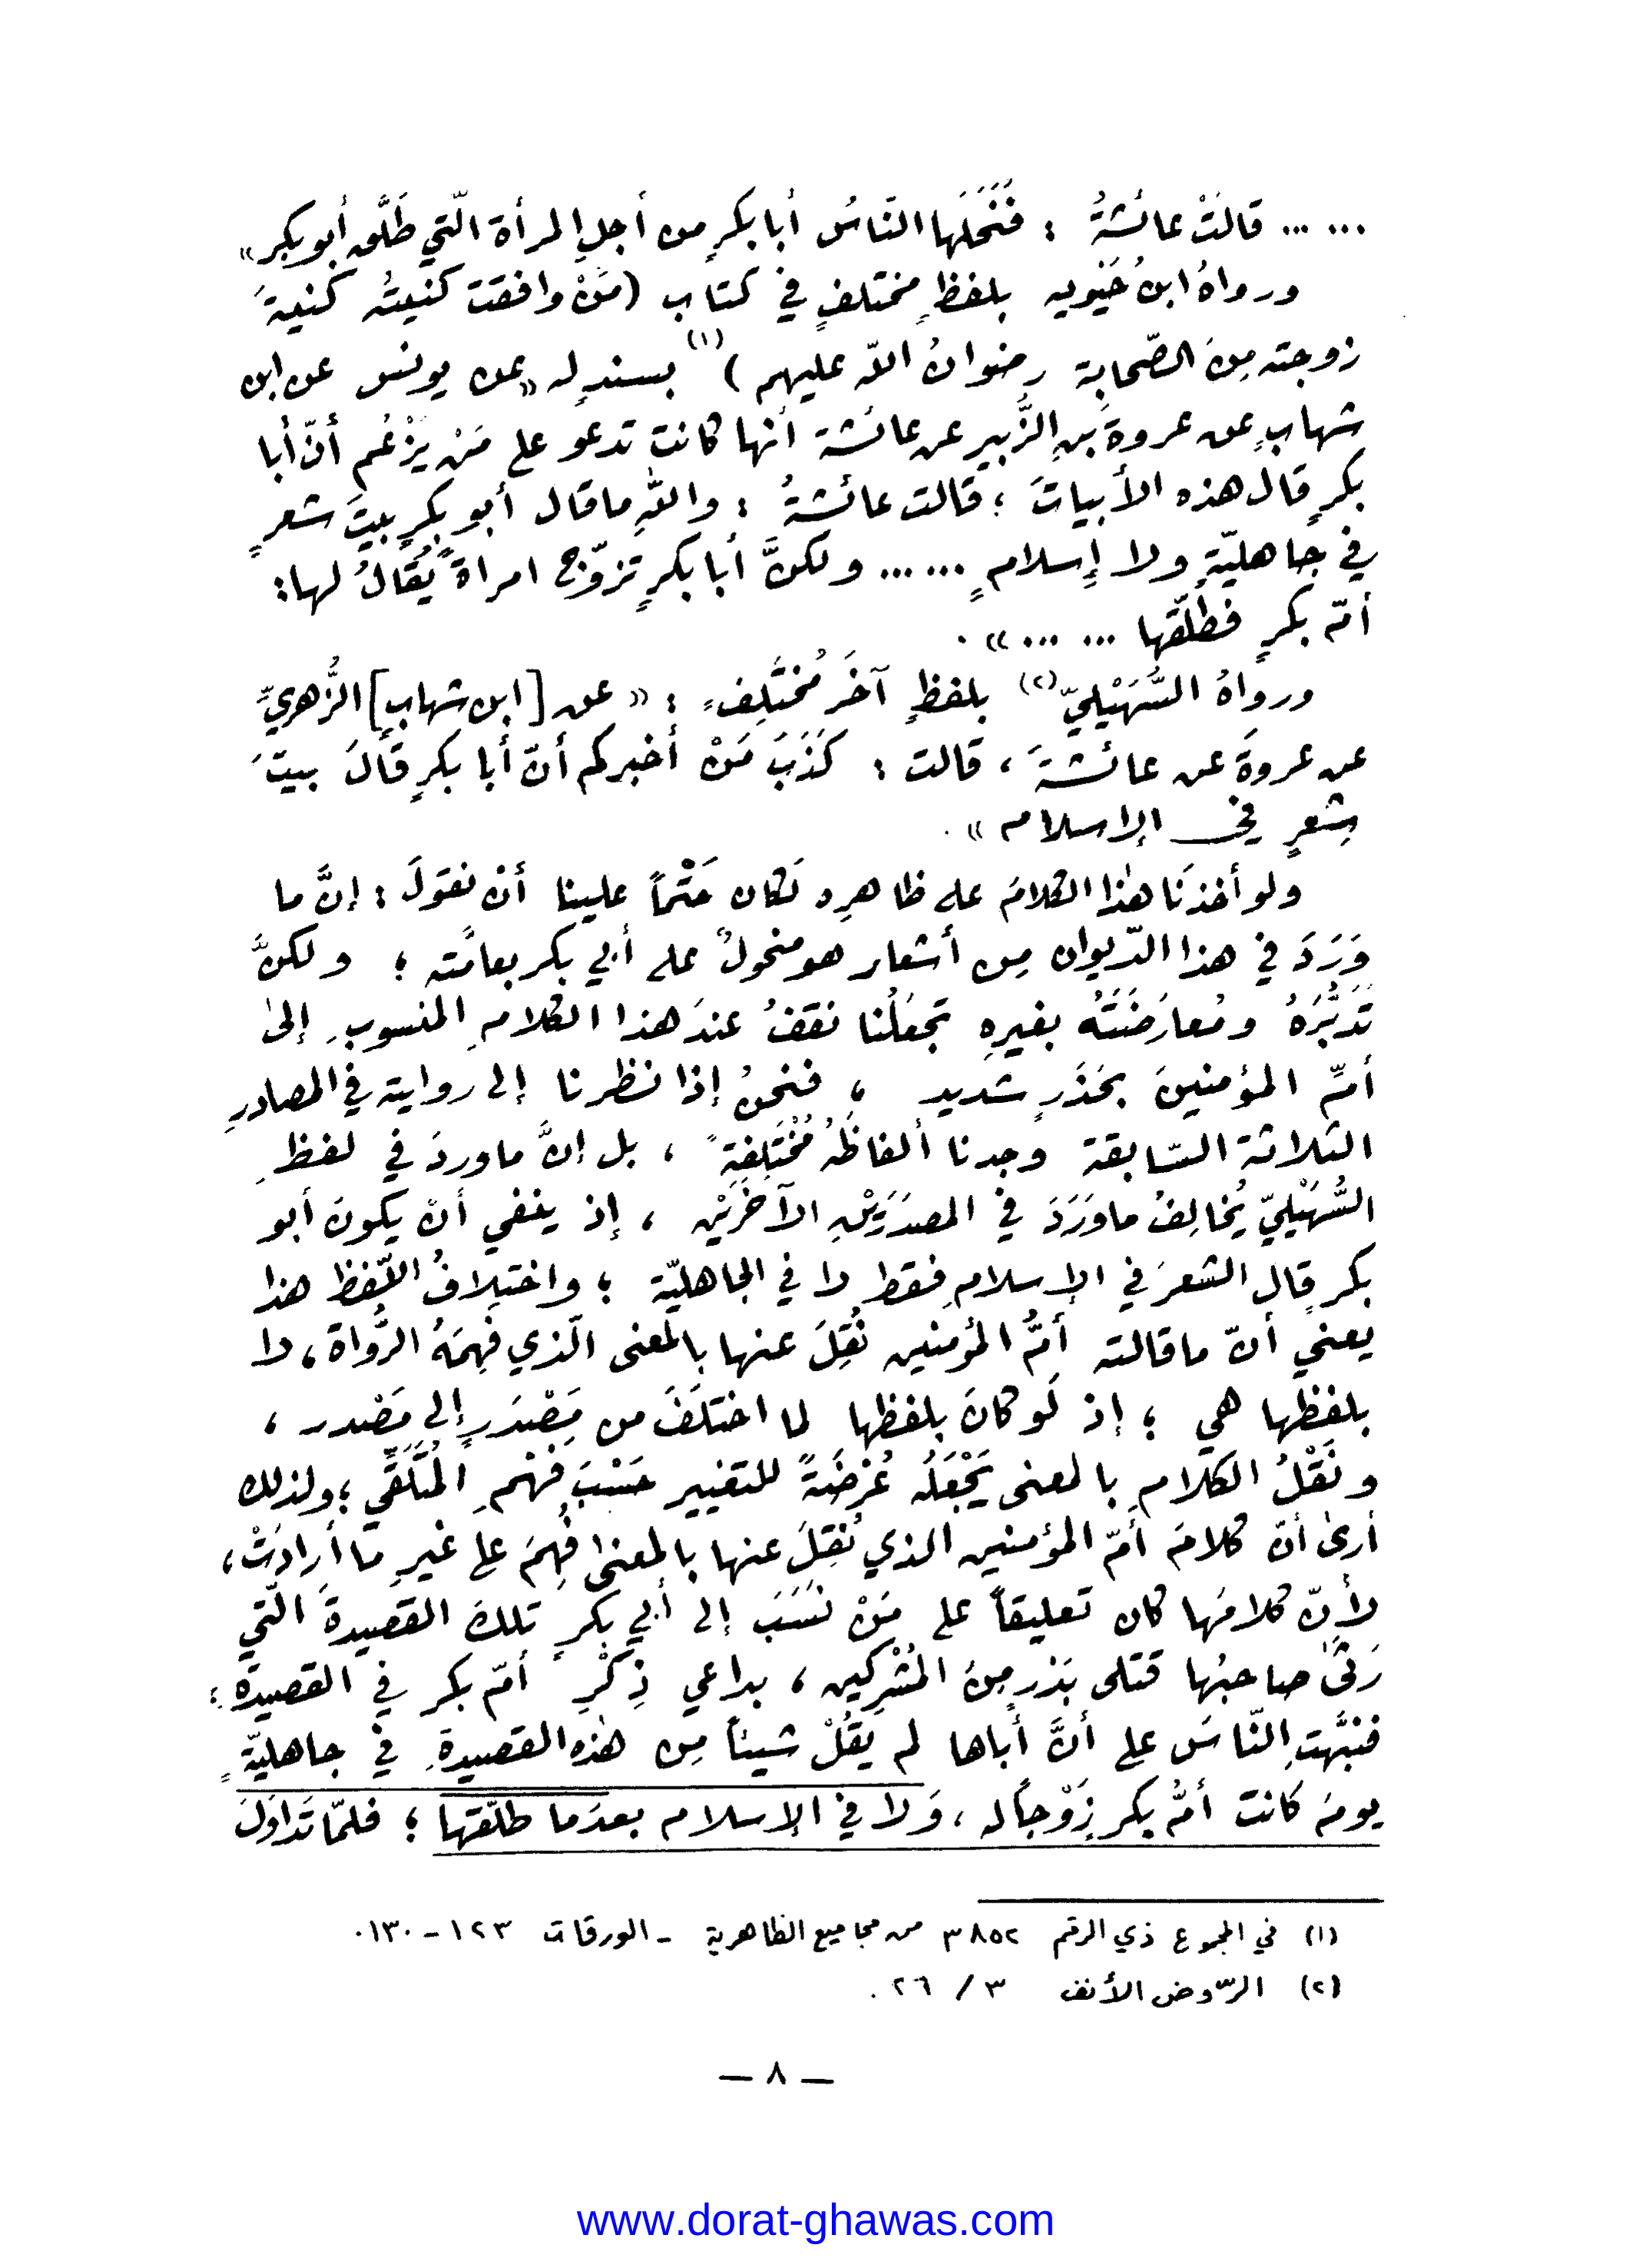 ... ... قالَتْ عائشةُ : فَنَحَلَها النّاسُ أبا بكرٍ من أجلِ المرأة الّتي طَلَّق أبو بكر»
ورواهُ ابنُ حَيُّويه بلفظٍ مختلفٍ في كتاب (مَنْ وافقت كنيتُه كنيةَ
زوجته مِنَ الصّحابة رضوانُ اللّه عليهم)(١) بسندٍ له «عن يونس عن ابن
شهابٍ عن عروةَ بنِ الزُّبير عن عائشة أنها كانت تدعو على مَنْ يَزْعُم أنّ أبا
بكرٍ قال هذه الأبياتَ ؛ قالت عائشةُ : واللّهِ ما قال أبو بكرٍ بيتَ شعرٍ
في جاهليّةٍ ولا إسلامٍ ... ... ولكنَّ أبا بكرٍ تزوّج امرأةً يُقالُ لها:
أمّ بكرٍ فطلّقها ... ... » .
ورواهُ السُّهَيْليّ(٢) بلفظٍ آخَرَ مُخْتَلِفٍ : « عن [ابن شهابٍ] الزُّهريِّ
عن عروةَ عن عائشةَ ، قالت : كَذَبَ مَنْ أخبركم أنّ أبا بكرٍ قالَ بيتَ
شِعرٍ في الإسلام » .
ولو أخذنَا هٰذا الكلامَ على ظاهرِه لَكان حَتْماً علينا أنْ نقولَ : إنَّ ما
وَرَدَ في هذا الدّيوان مِن أشعار هو منحولٌ على أبي بكر بعامّته ؛ ولكنَّ
تَدَبُّرَهُ ومُعارَضَتَهُ بغيرِهِ تَجعَلُنا نقفُ عندَ هذا الكلامِ المنسوبِ إلىٰ
أمِّ المؤمنينَ بحَذَرٍ شديد ، فنحنُ إذا نظرنا إلى روايته في المصادرِ
الثلاثة السّابقة وجدنا ألفاظَهُ مُخْتَلِفةً ، بل إنَّ ما وردَ في لفظِ
السُّهَيْليّ يُخالِفُ ما وَرَدَ في المصدَرَيْنِ الآخَرَيْن ، إذ ينفي أنْ يكونَ أبو
بكرٍ قال الشعرَ في الإسلامِ فقط لا في الجاهليّة ؛ واختِلافُ اللّفظ هذا
يعني أنّ ما قالته أمُّ المؤمنين نُقِلَ عنها بالمعنى الّذي فَهِمَهُ الرُّواة ، لا
بلفظِها هي ؛ إذ لَو كانَ بلفظِها لما اختلَفَ من مَصْدَرٍ إلى مَصْدر ،
ونَقْلُ الكلامِ بالمعنى يَجْعَلُه عُرْضَةً للتغيير حَسْبَ فَهْمِ المُتَلَقِّي ؛ ولذلك
أرىٰ أنّ كلامَ أمّ المؤمنين الذي نُقِلَ عنها بالمعنىٰ فُهِمَ على غيرِ ما أرادَتْ ،
لأنّ كلامَها كان تعليقاً على مَنْ نَسَبَ إلى أبي بكرٍ تلكَ القصيدةَ الّتي
رَثىٰ صاحبُها قتلى بَدْرٍ مِنَ المُشْرِكين ، بداعي ذِكْرِ أمّ بكر في القصيدة ؛
فنبَّهتِ النّاسَ على أنَّ أباها لم يَقُلْ شيئاً مِن هٰذه القصيدةِ في جاهليّةٍ
يومَ كانت أمُّ بكر زَوْجاً له ، وَلا في الإسلام بعدَما طلّقها ؛ فلمّا تَداوَلَ
(١) في المجموع ذي الرقم ٣٨٥٢ من مجاميع الظاهرية - الورقات ١٢٣ - ١٣٠.
(٢) الرّوض الأنف ٣ / ٢٦ .
— ٨ —
www.dorat-ghawas.com